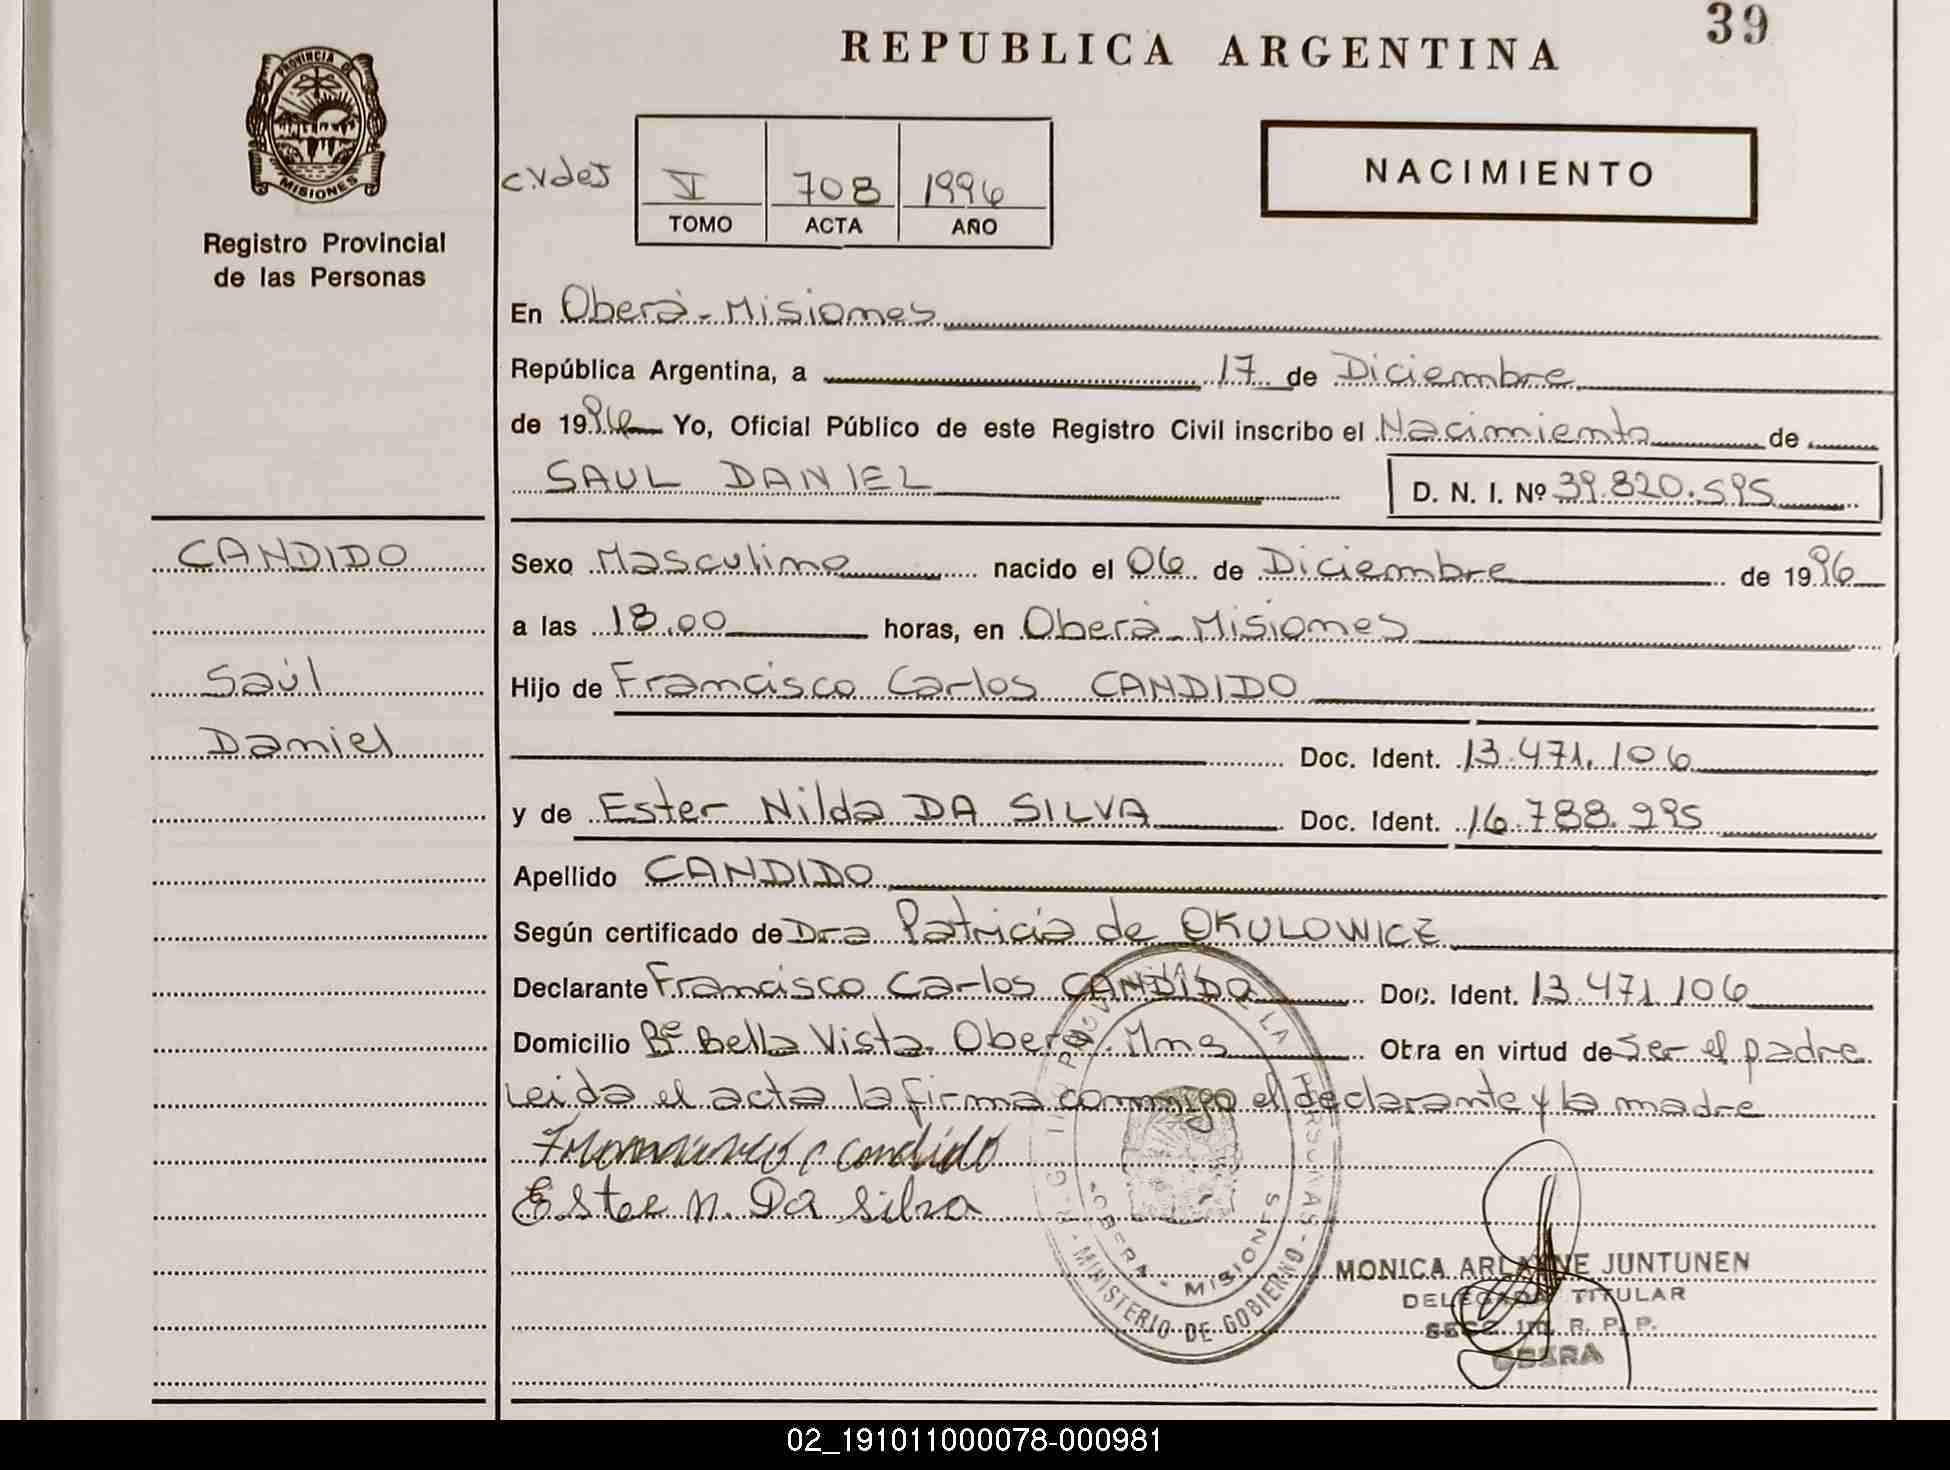 39
REPUBLICA ARGENTINA
PROVINCIA DE
MISIONES
Registro Provincial
de las Personas
NACIMIENTO
V 708 1996
TOMO ACTA AÑO
En Oberá - Misiones
República Argentina, a 17 de Diciembre
de 1996 Yo, Oficial Público de este Registro Civil inscribo el Nacimiento de
SAUL DANIEL D. N. I. Nº 39.820.595
CANDIDO
Saúl
Daniel
Sexo Masculino nacido el 06 de Diciembre de 1996
a las 18.00 horas, en Oberá - Misiones
Hijo de Francisco Carlos CANDIDO
Doc. Ident. 13.471.106
y de Ester Nilda DA SILVA Doc. Ident. 16.788.995
Apellido CANDIDO
Según certificado de Dra Patricia de OKULOWICZ
Declarante Francisco Carlos CANDIDO Doc. Ident. 13.471.106
Domicilio Bº Bella Vista. Oberá. Mns Obra en virtud de ser el padre
Leida el acta la firma conmigo el declarante y la madre
candido
Ester N. Da Silva
OBERA - MISIONES
MINISTERIO DE GOBIERNO
MONICA ARLAYNE JUNTUNEN
DELEGADA TITULAR
SECC. 1ra. R. P. P.
OBERA
02_191011000078-000981